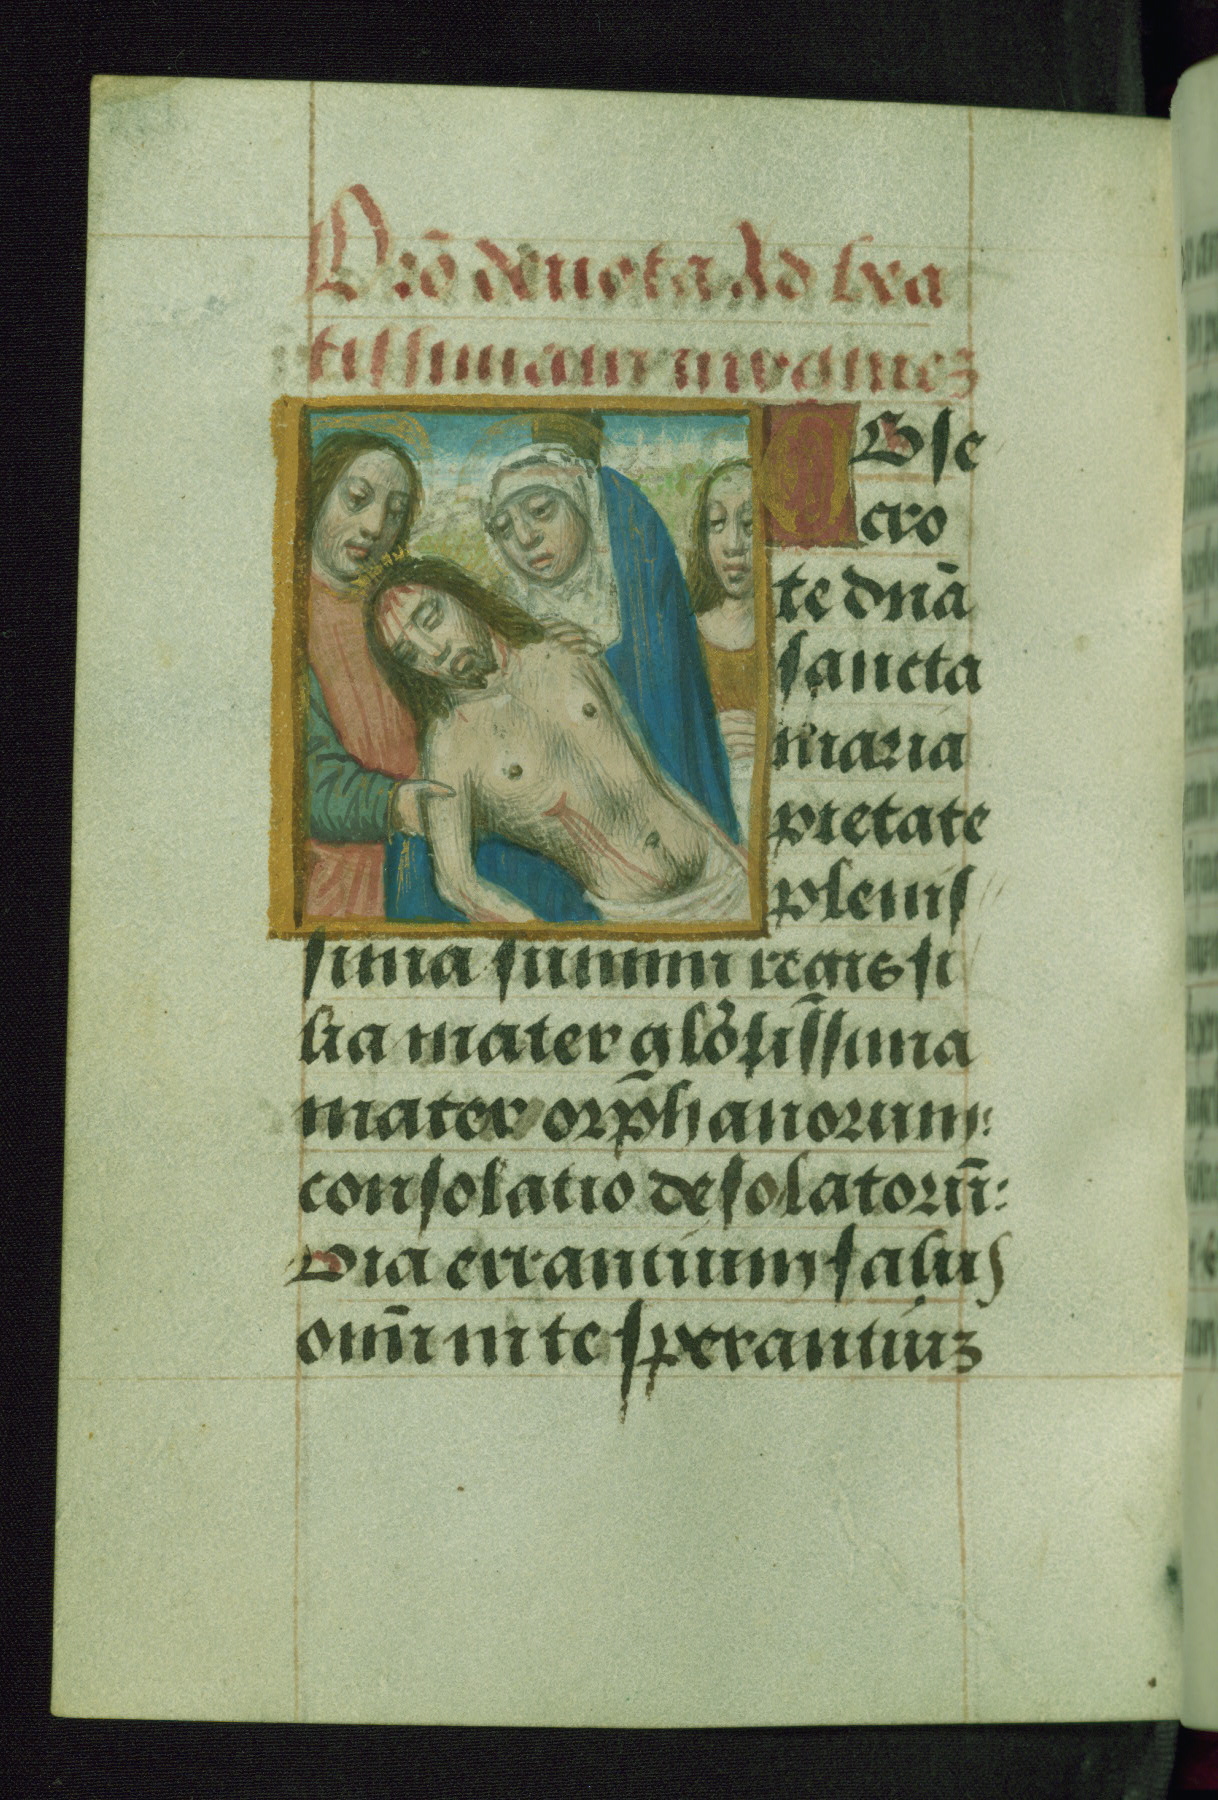 Orõ deuota Ad bea
tissimam uirginez
OBse
cro
te dnã
sancta
maria
pietate
plenis
sima summi regis fi
lia mater glo᷑sĩssima
mater orp̃hanorum:
consolatio desolatorũ:
Via errantium salus
omĩ in te sperantiuz